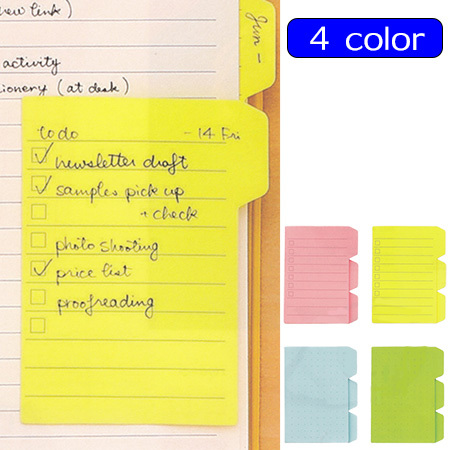 new link)
activity
(at desk)
Jun -
4 color
to do - 14 Fri
newsletter draft
samples pick up
+ check
photo shooting
price list
proofreading